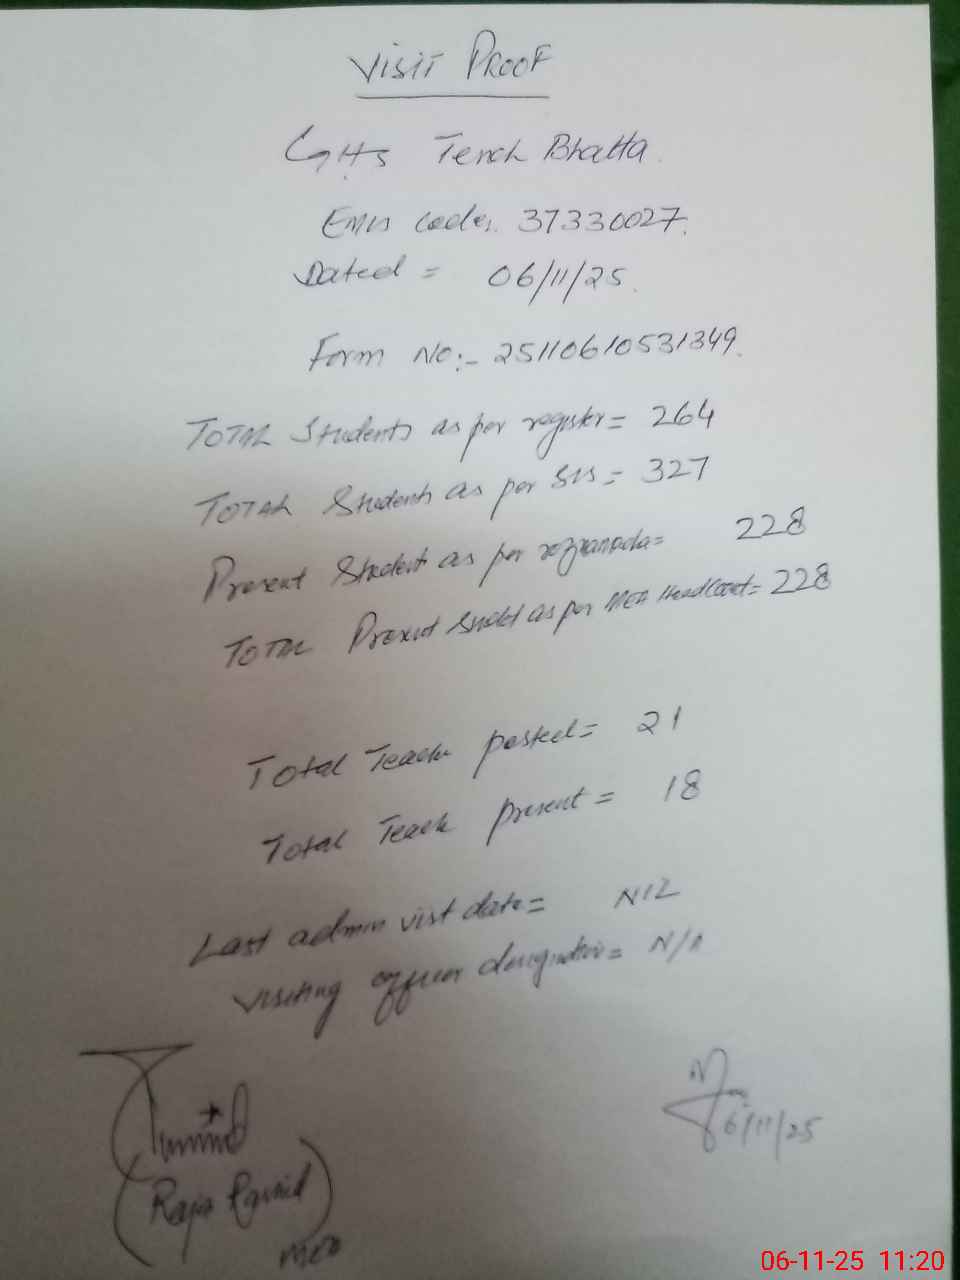 Visit Proof
GHS Tench Bhatta.
Emis code. 37330027.
Dated = 06/11/25.
Form No:- 25110610531349.
Total Students as per register = 264
Total Students as per SIS = 327
Present Student as per roznamcha = 228
Total Present Studet as per MEA Head Count = 228
Total Teache posted = 21
Total Teach present = 18
Last admin visit date = NIL
Visiting officer designation = N/A
(Raja
MEA
6/11/25
06-11-25 11:20